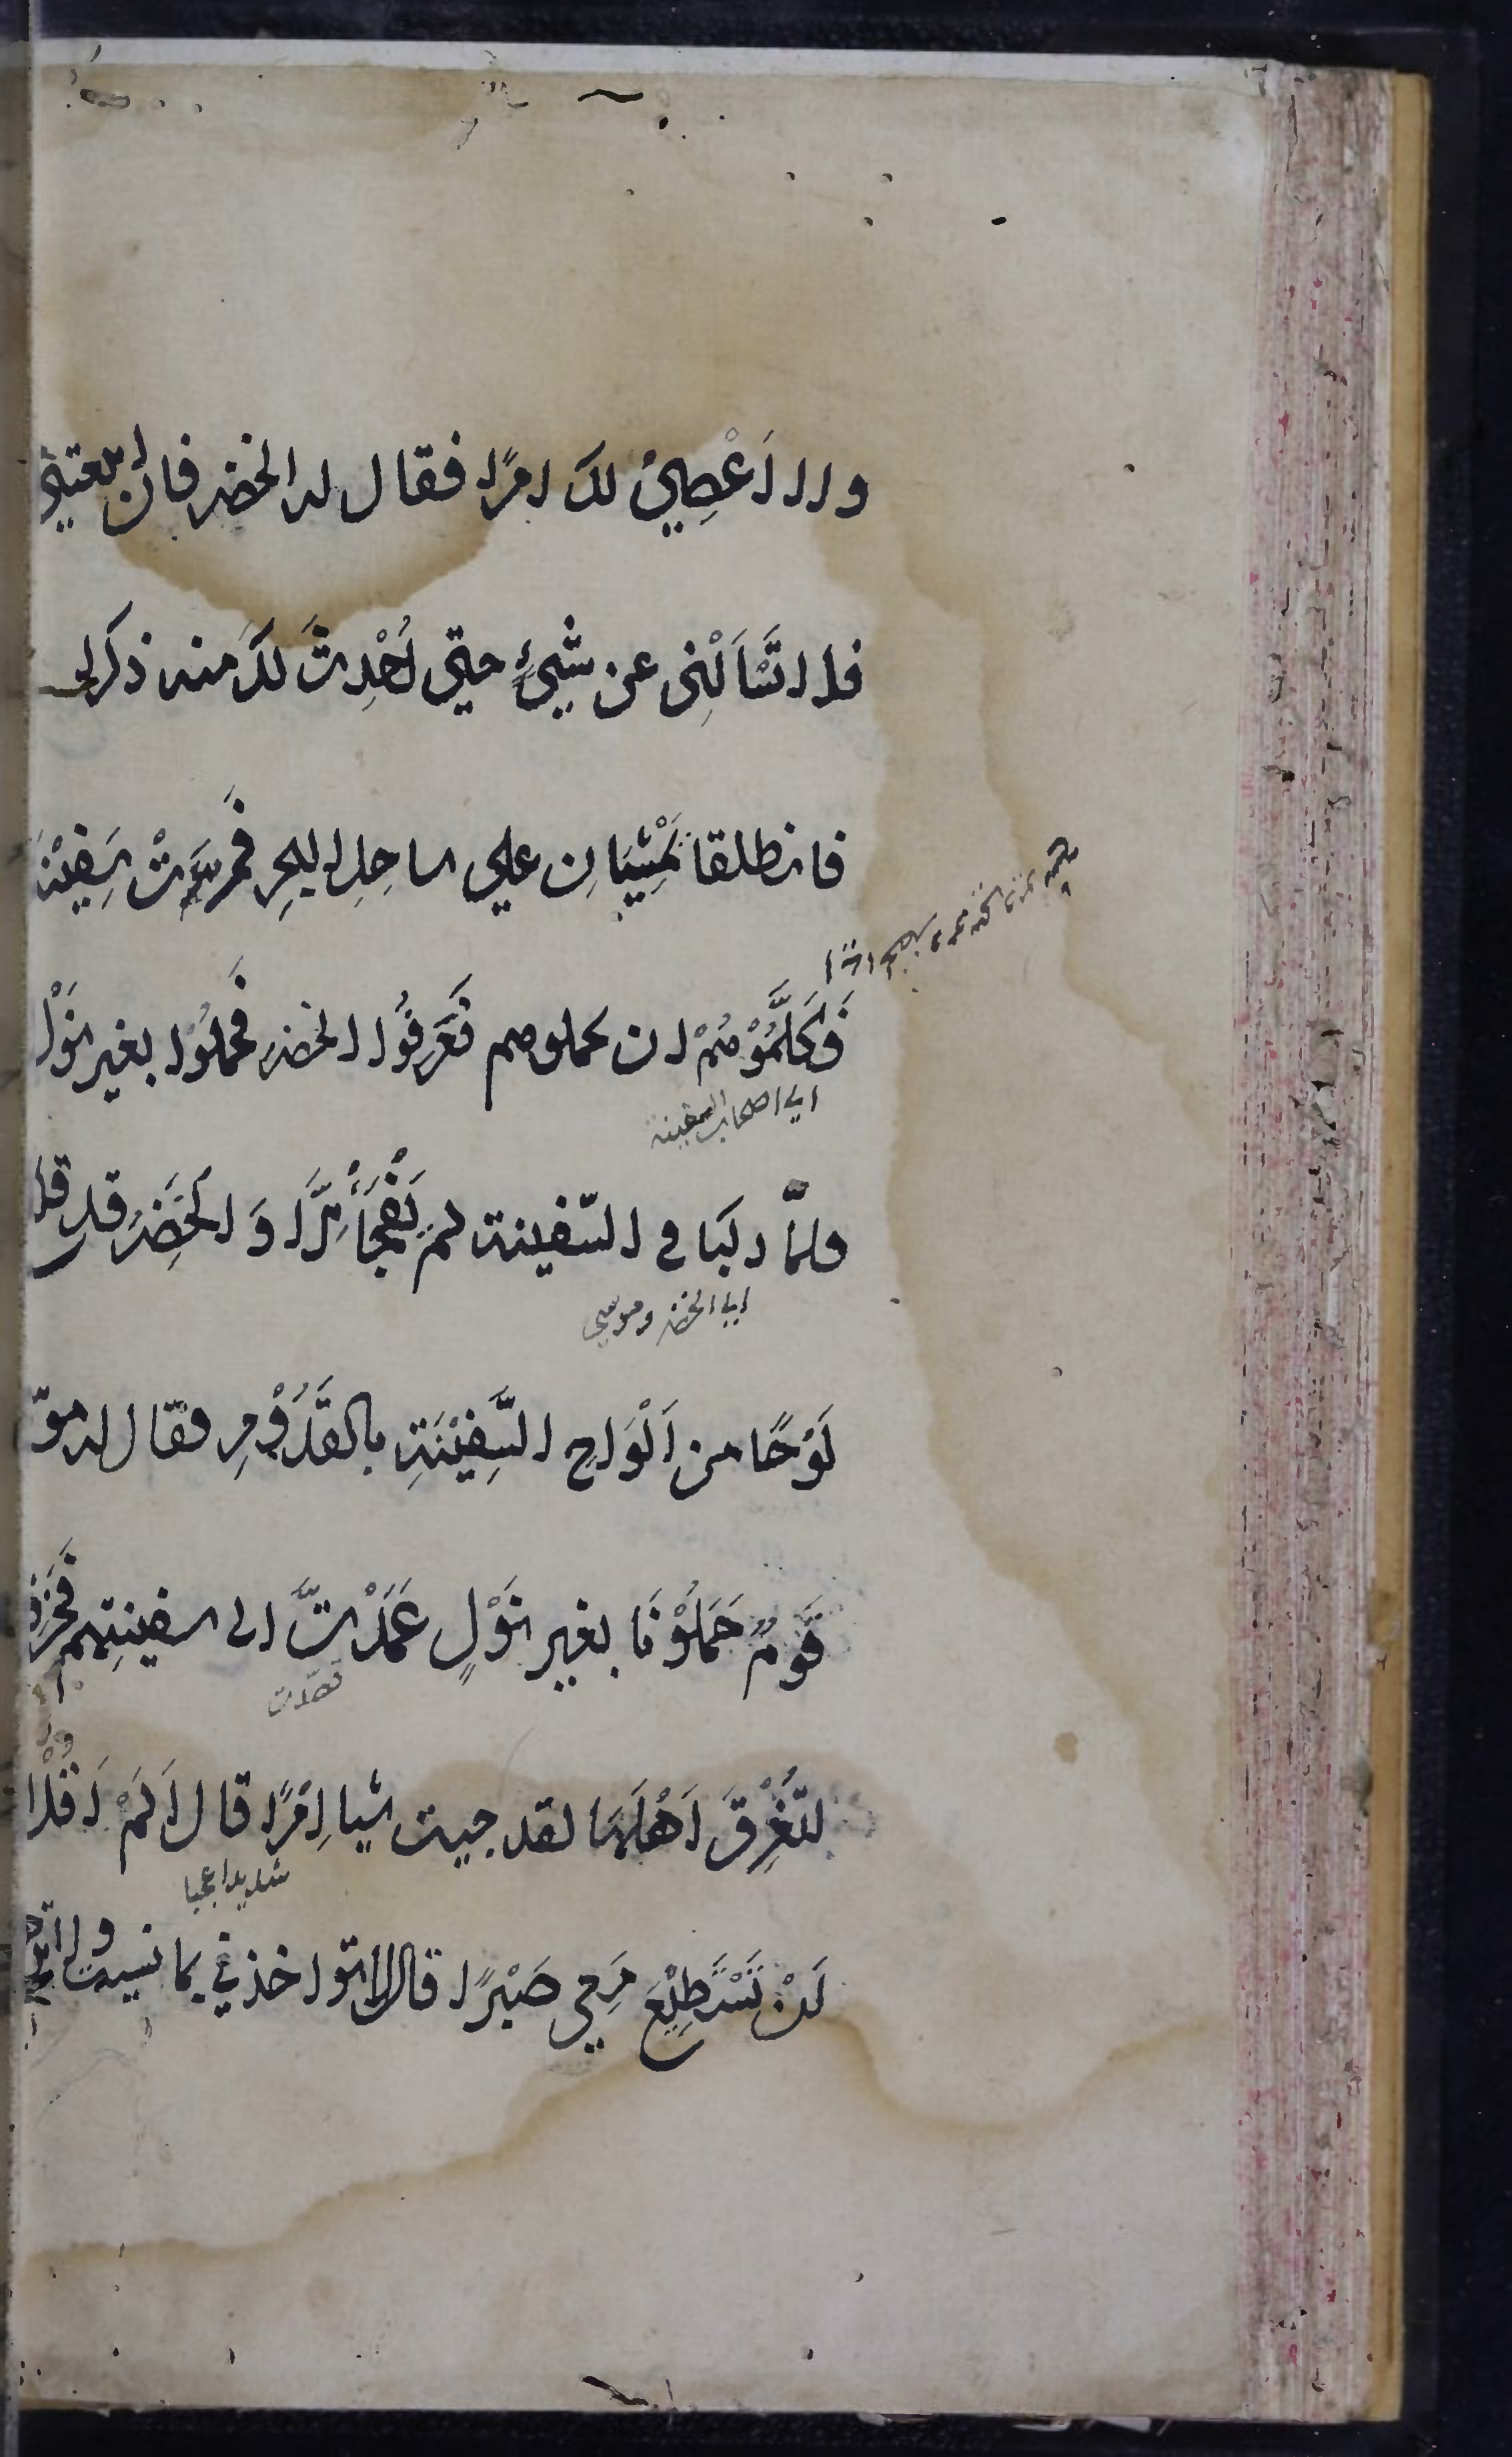 ولا اَعْصِيْ لك امرًا فقال له الخضر فان اتبعتني
فلا تَسْاَلْنِى عن شَيْءٍ حتى اُحْدِثَ لَكَ منه ذكرا
فانطلقا يَمْشِيَانِ على ساحِلِ البحرِ فَمَرَّتْ سَفِيْنَة
فَكَلَّمُوْهُمْ ان يحملوهم فَعَرَفُوا الخضر فَحَمَلُوْا بغير نَوْل
اي اصحاب السفينة
فلمّا ركبَا في السّفينة لم يَفْجَأْ اِلَّا وَ الْخَضِرُ قد قلع
اي الخضر وموسى
لَوْحًا من اَلْوَاحِ السَّفِيْنَةِ بالقَدُوْمِ فقال له موسى
قَوْمٌ حَمَلُوْنَا بغير نَوْلٍ عَمَدْتَ الى سفينتِهم فَخَرَقْتَهَا
قصدت
لتُغْرِقَ اَهْلَهَا لقد جيت شيا اِمْرًا قال اَلَمْ اَقُلْ
شديدا عجبا
لَنْ تَسْتَطِيْعَ مَعِي صَبْرًا قال لا تواخذني بما نسيت ولا